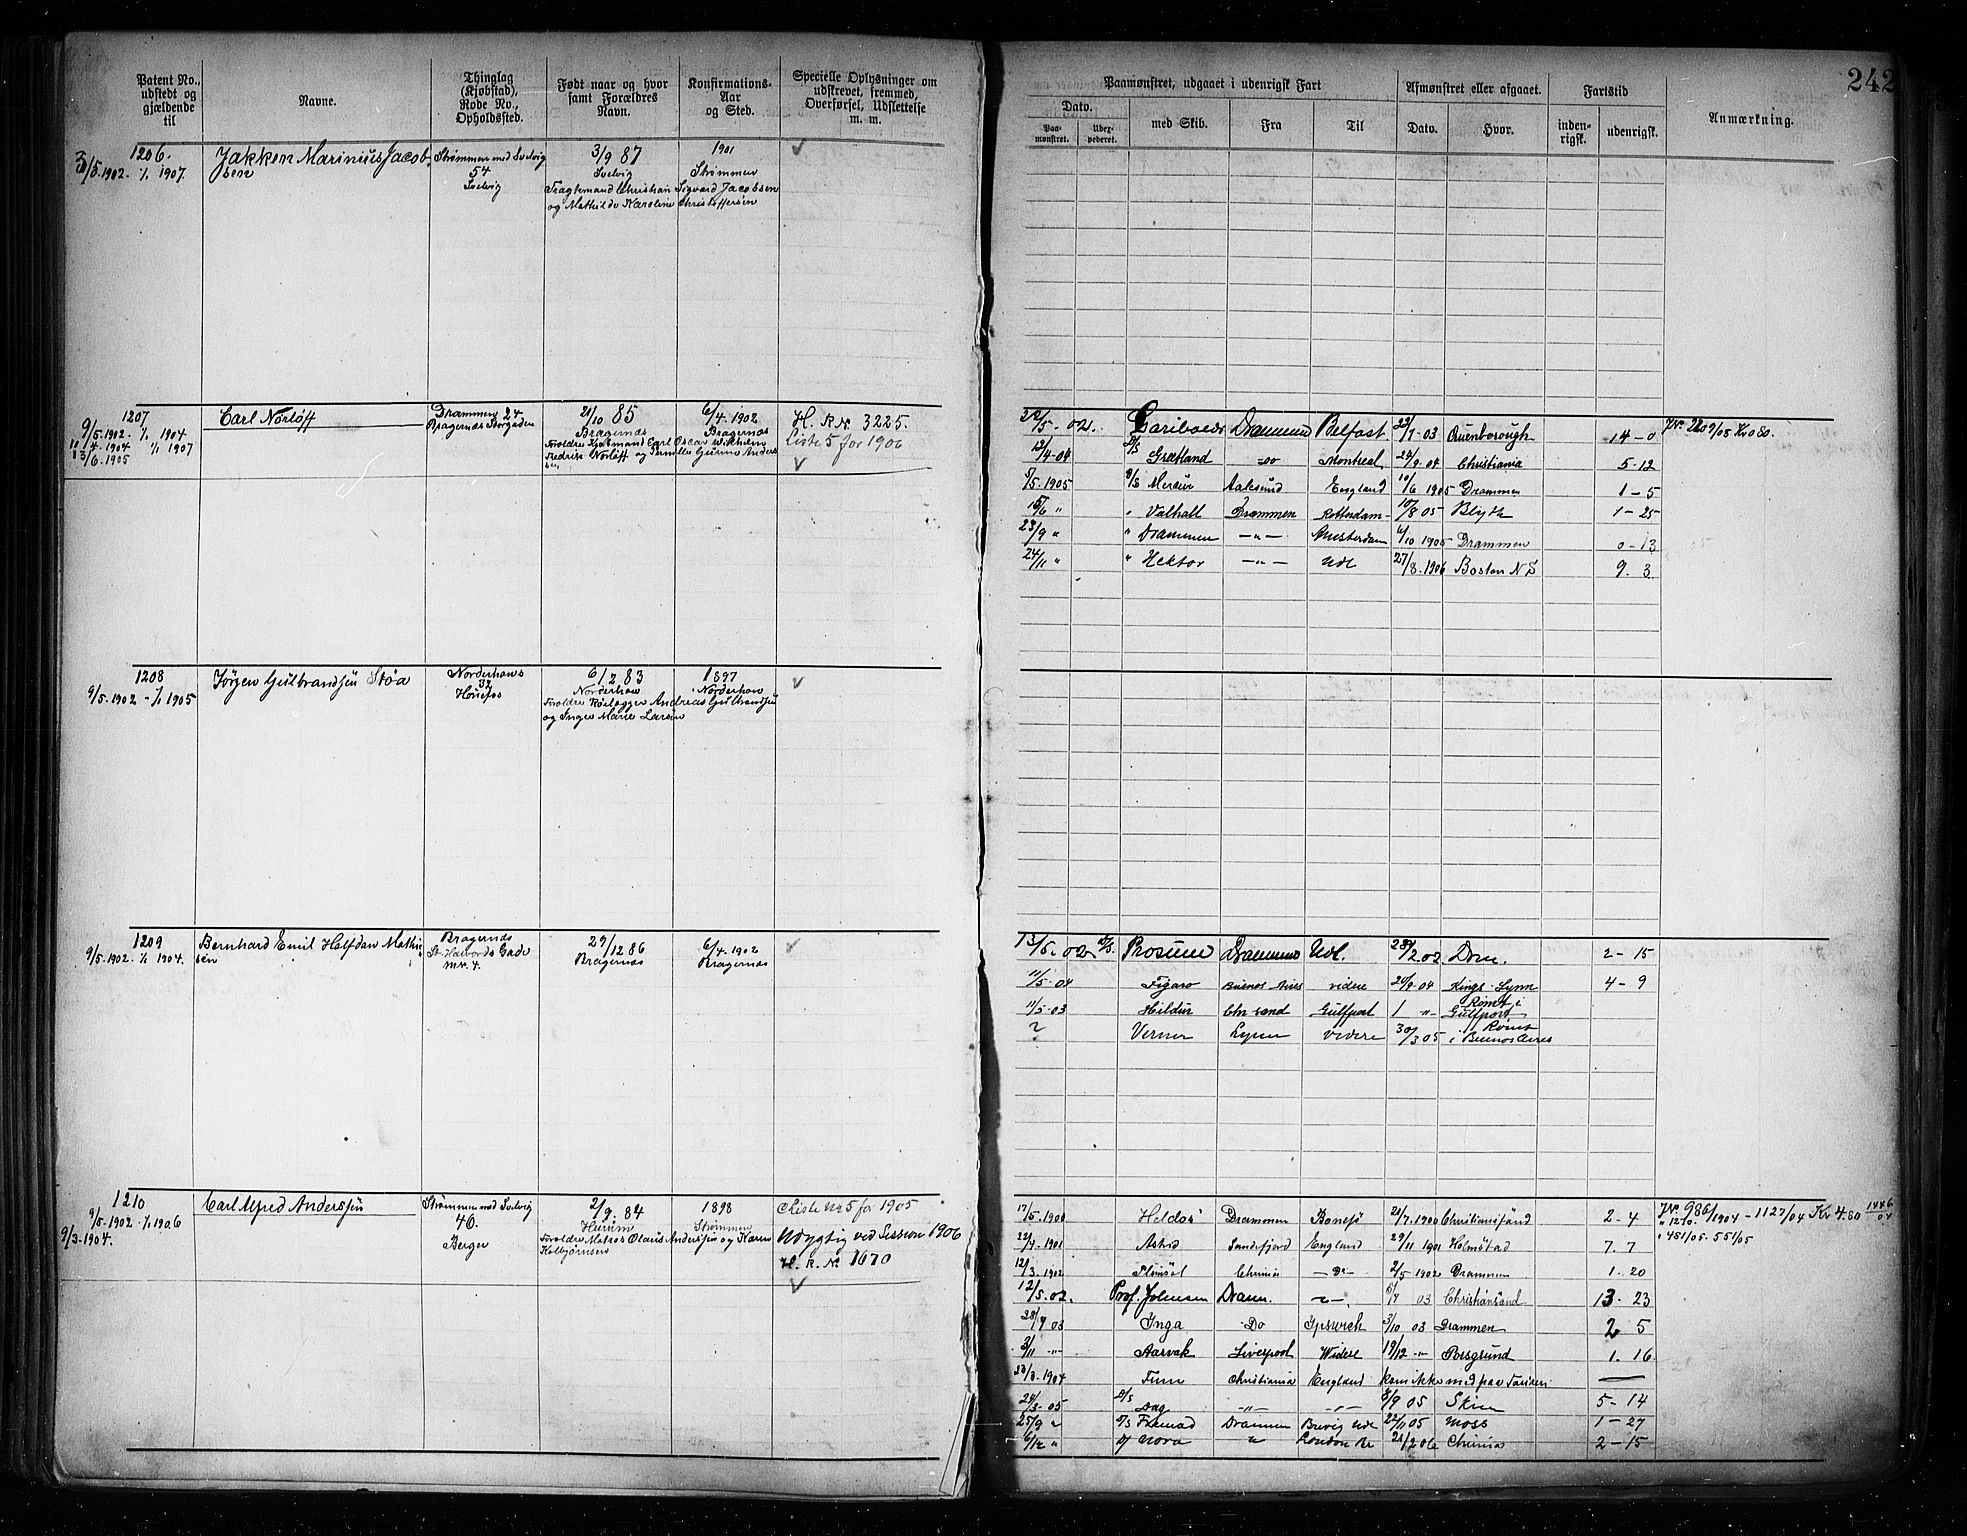 242
Patent No., udstedt og gjældende til
Navne.
Thinglag (Kjøbstad), Rode No., Opholdssted.
Født naar og hvor samt Forældres Navn.
Konfirmations-Aar og Sted.
Specielle Oplysninger om udskrevet, fremmed, Overførsel, Udslettelse m. m.
Paamønstret, udgaaet i udenrigsk Fart
Dato.
Paa-mønstret.
Uber-pederet.
med Skib.
Fra
Til
Afmønstret eller afgaaet.
Dato.
Hvor.
Fartstid
inden-rigsk.
udenrigsk.
Anmærkning.
1206. Jakken Marinius Jacob Strømmen med Svelvig 3/9 87 1901
3/5-1902. 1/1 1907. sen 54 Svelvig Strømmen
Svelvig Fragtmand Christian Sigvard Jacobsen
og Mathilde Karoline Christoffersen
1207 Carl Norløff Drammen 24 21/10 85 6/4 1902 H. R. Nr. 3225.
9/5-1902. 1/1 1904 Bragernæs Storgaden Bragernæs Bragernæs Liste 5 for 1906
11/4-1904 1/1 1907 Forældre Kjøbmand Carl Oscar Wilhelm
3/6-1905 Fredrik Norløff og Pernille Gurine Anders
sen
5-02. Garibaldi Drammen Belfast 22/7-03 Quenborough 14-0
12/4-04 Grætland -do- Montreal 24/9-04 Christiania 5-12
5/5-1905 Aalesund England 10/6 1905 Drammen 1-5
15/6 " " Valhall Drammen Rotterdam 10/8 05 Blyth 1-25
23/9 " " Drammen -"- Amsterdam 6/10 1905 Drammen 0-13
24/11 " " Hektor -"- Udl 27/8-1906 Boston 9. 3.
1208 Jørgen Gulbrandsen Støa Norderhovs 6/2 83 1897
9/5-1902 - 1/1 1905 32 Norderhov Norderhov
Hønefos Forældre Andreas Gulbrandsen
og Inger Marie Larsen
1209 Bernhard Emil Halfdan Mathi Bragernæs 29/12 86 6/4-1902
9/5-1902. 1/1 1904. sen St. Halvards Gade Bragernæs Bragernæs
nr. 4.
13/5-02 Prosum Drammen Udl. 28/2 02 Dram. 2-15
11/5-04 Figaro Buenos Aires videre 20/9-04 Kings Lynn 4-9
11/5-03 Hildur Chr sand Gulfport 1 " Rømt i Gulfport
? Verner videre 30/3 05 Rømt i Buenos Aires
1210 Carl Alfred Anderssen Strømmen med Svelvig 2/9. 84 1898 Liste No 5 for 1905
9/5-1902. 1/1 1906 46. Hurum Strømmen Udygtig ved Session 1906
9/3-1904. Berger Forældre Matros Olaus Anderssen og Karen H. R. No 1670
Kolbjørnsen
17/5-1900 Heldos Drammen 21/7-1900 Christianssand 2-4
22/4-1901 Astrid Sandefjord England 29/11 1901 Holmstad 7. 7
12/3-1902 Chrania -Do- 2/5 1902 Drammen 1. 20
12/5-02. Prof. Johnsen Dram. -"- 03 Christianssand 13. 23
28/7 03 Inga Do Ipswich 3/10 03 Drammen 2 5
3/11 -"- Aarvak Liverpool Widere 19/12 -"- Porsgrund 1. 16
23/3-1904 Christiania England kom ikke med paa Touren
24/3-05 Dag -"- -"- 8/9 05 Skien 5-14
25/9 " Drammen Brevig Udl 22/11 05 Moss 1-27
6/12 " Nora " London 21/2 06 Chrania 2-15